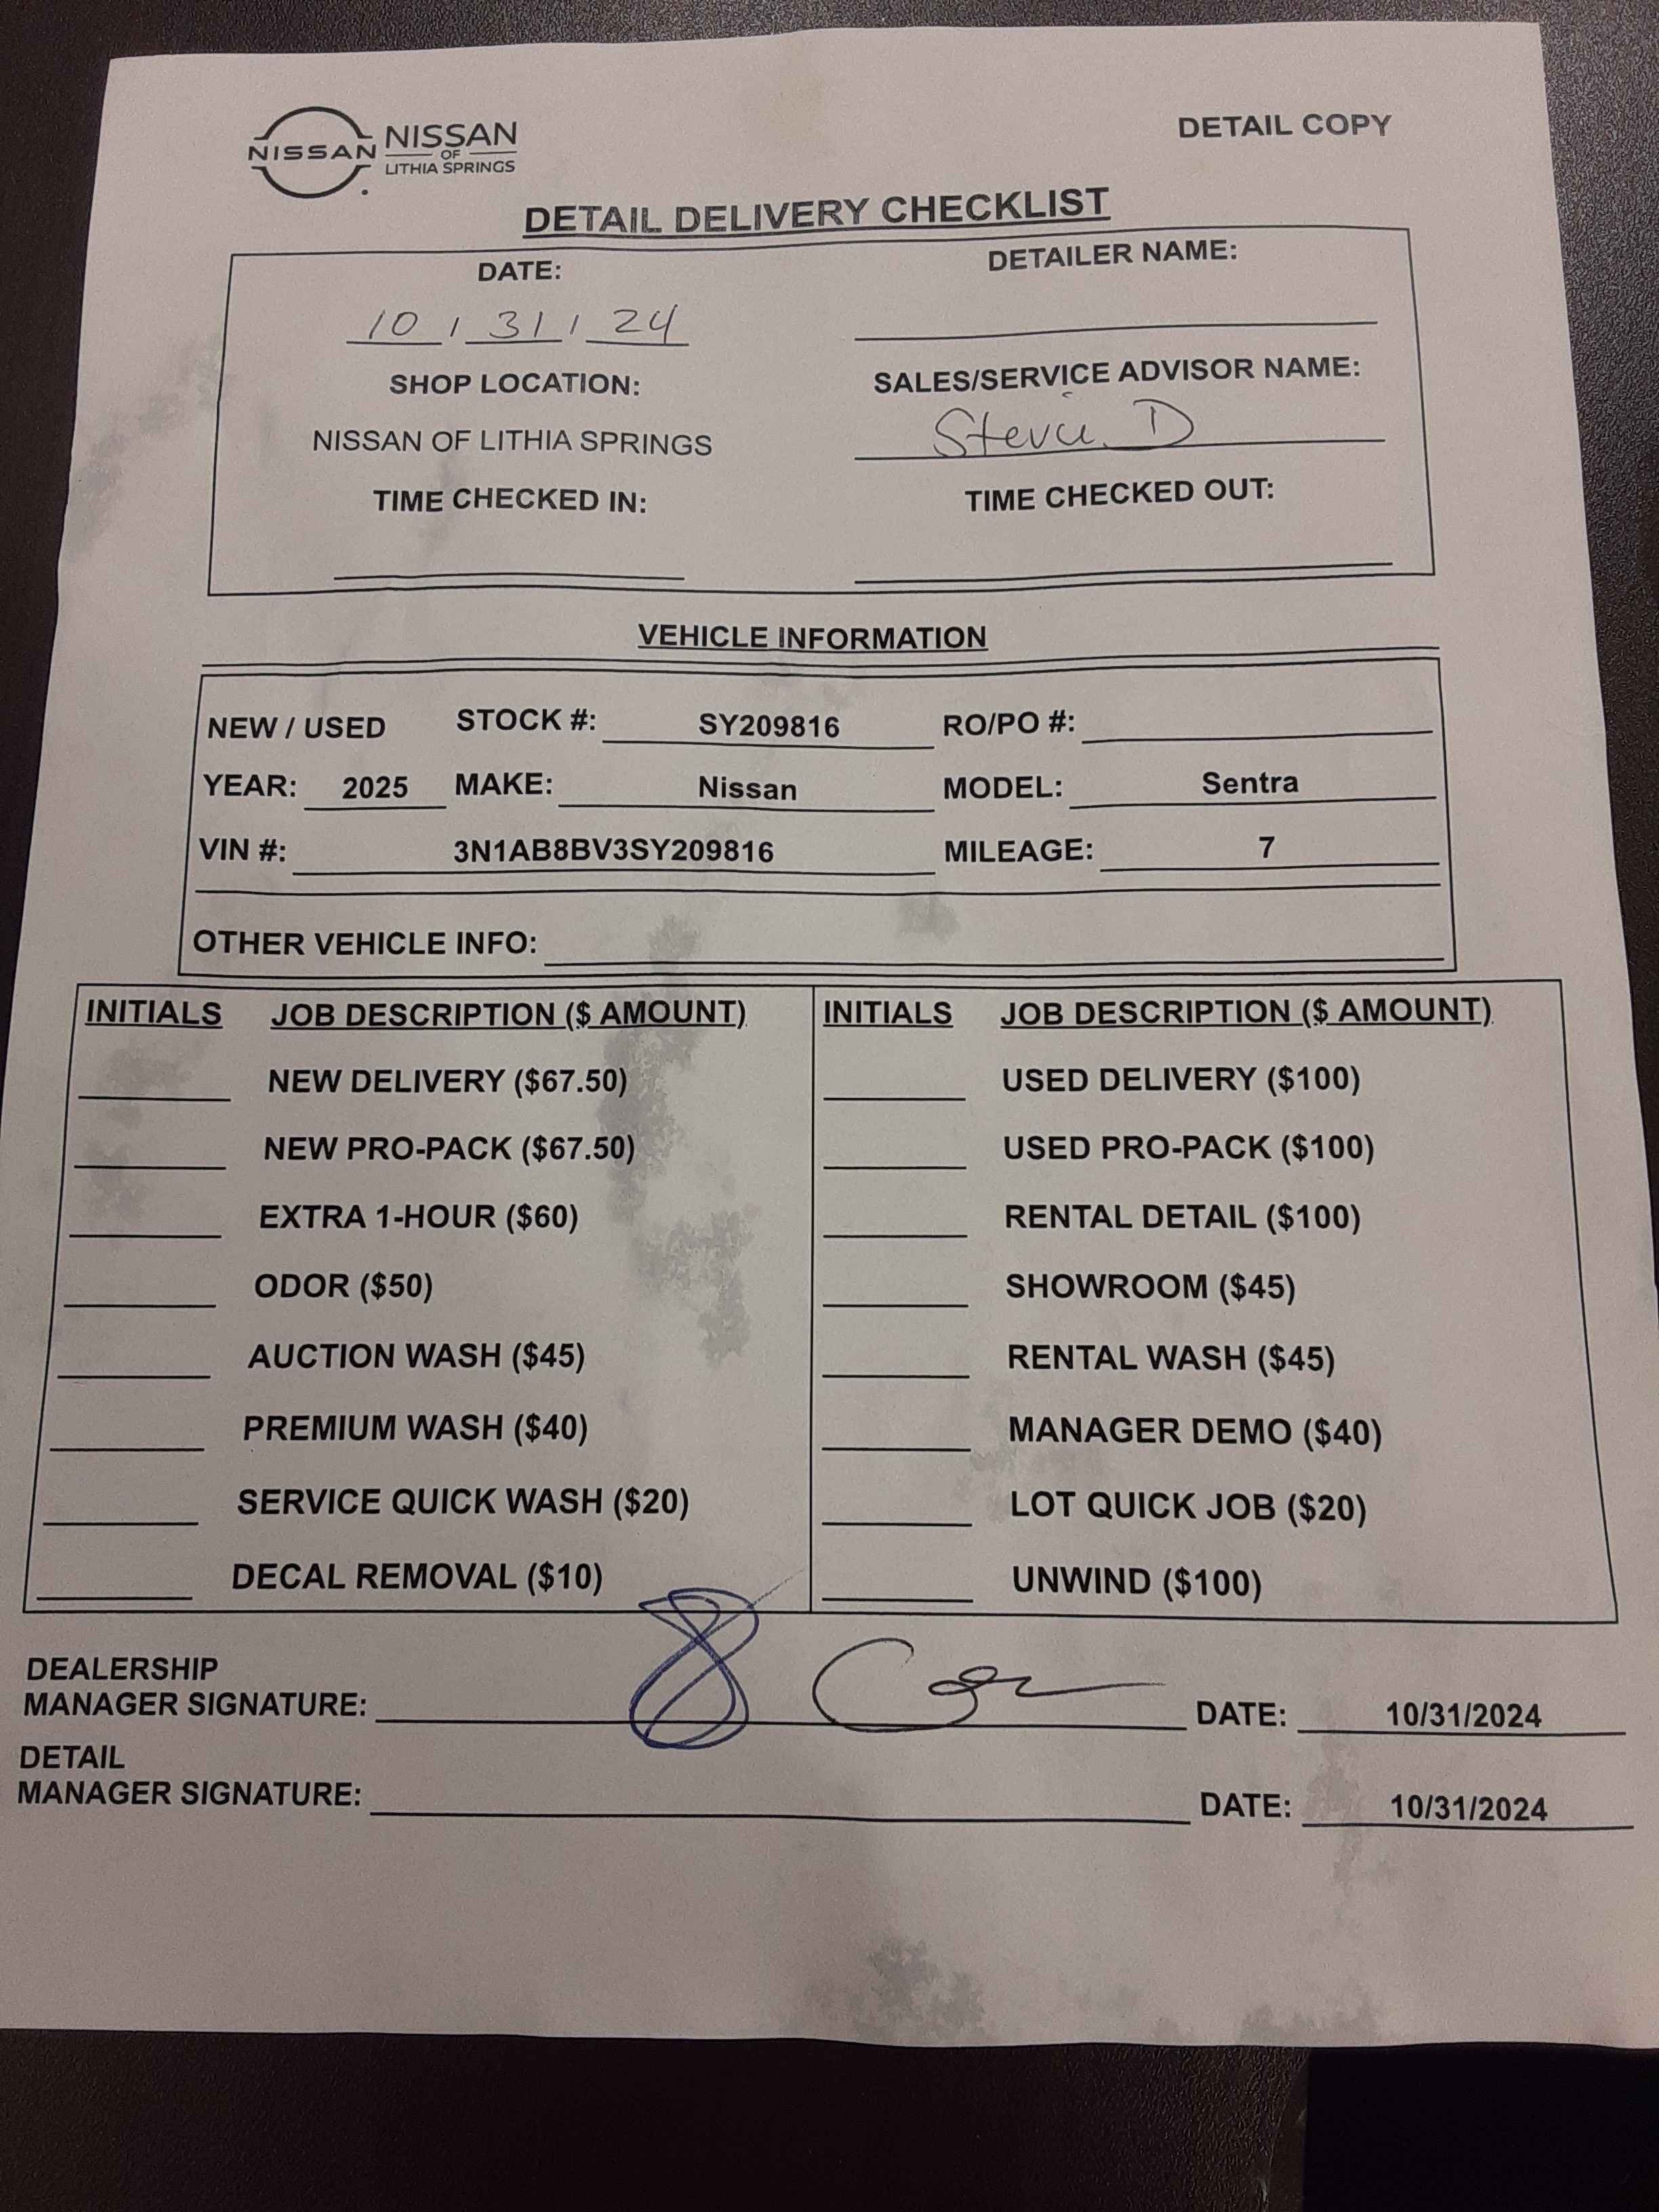 NISSAN NISSAN OF LITHIA SPRINGS
DETAIL COPY
DETAIL DELIVERY CHECKLIST
DATE: DETAILER NAME:
10 / 31 / 24
SHOP LOCATION: SALES/SERVICE ADVISOR NAME:
NISSAN OF LITHIA SPRINGS D
TIME CHECKED IN: TIME CHECKED OUT:
VEHICLE INFORMATION
NEW / USED STOCK #: SY209816 RO/PO #:
YEAR: 2025 MAKE: Nissan MODEL: Sentra
VIN #: 3N1AB8BV3SY209816 MILEAGE: 7
OTHER VEHICLE INFO:
INITIALS JOB DESCRIPTION ($ AMOUNT) INITIALS JOB DESCRIPTION ($ AMOUNT)
NEW DELIVERY ($67.50) USED DELIVERY ($100)
NEW PRO-PACK ($67.50) USED PRO-PACK ($100)
EXTRA 1-HOUR ($60) RENTAL DETAIL ($100)
ODOR ($50) SHOWROOM ($45)
AUCTION WASH ($45) RENTAL WASH ($45)
PREMIUM WASH ($40) MANAGER DEMO ($40)
SERVICE QUICK WASH ($20) LOT QUICK JOB ($20)
DECAL REMOVAL ($10) UNWIND ($100)
DEALERSHIP
MANAGER SIGNATURE: DATE: 10/31/2024
DETAIL
MANAGER SIGNATURE: DATE: 10/31/2024